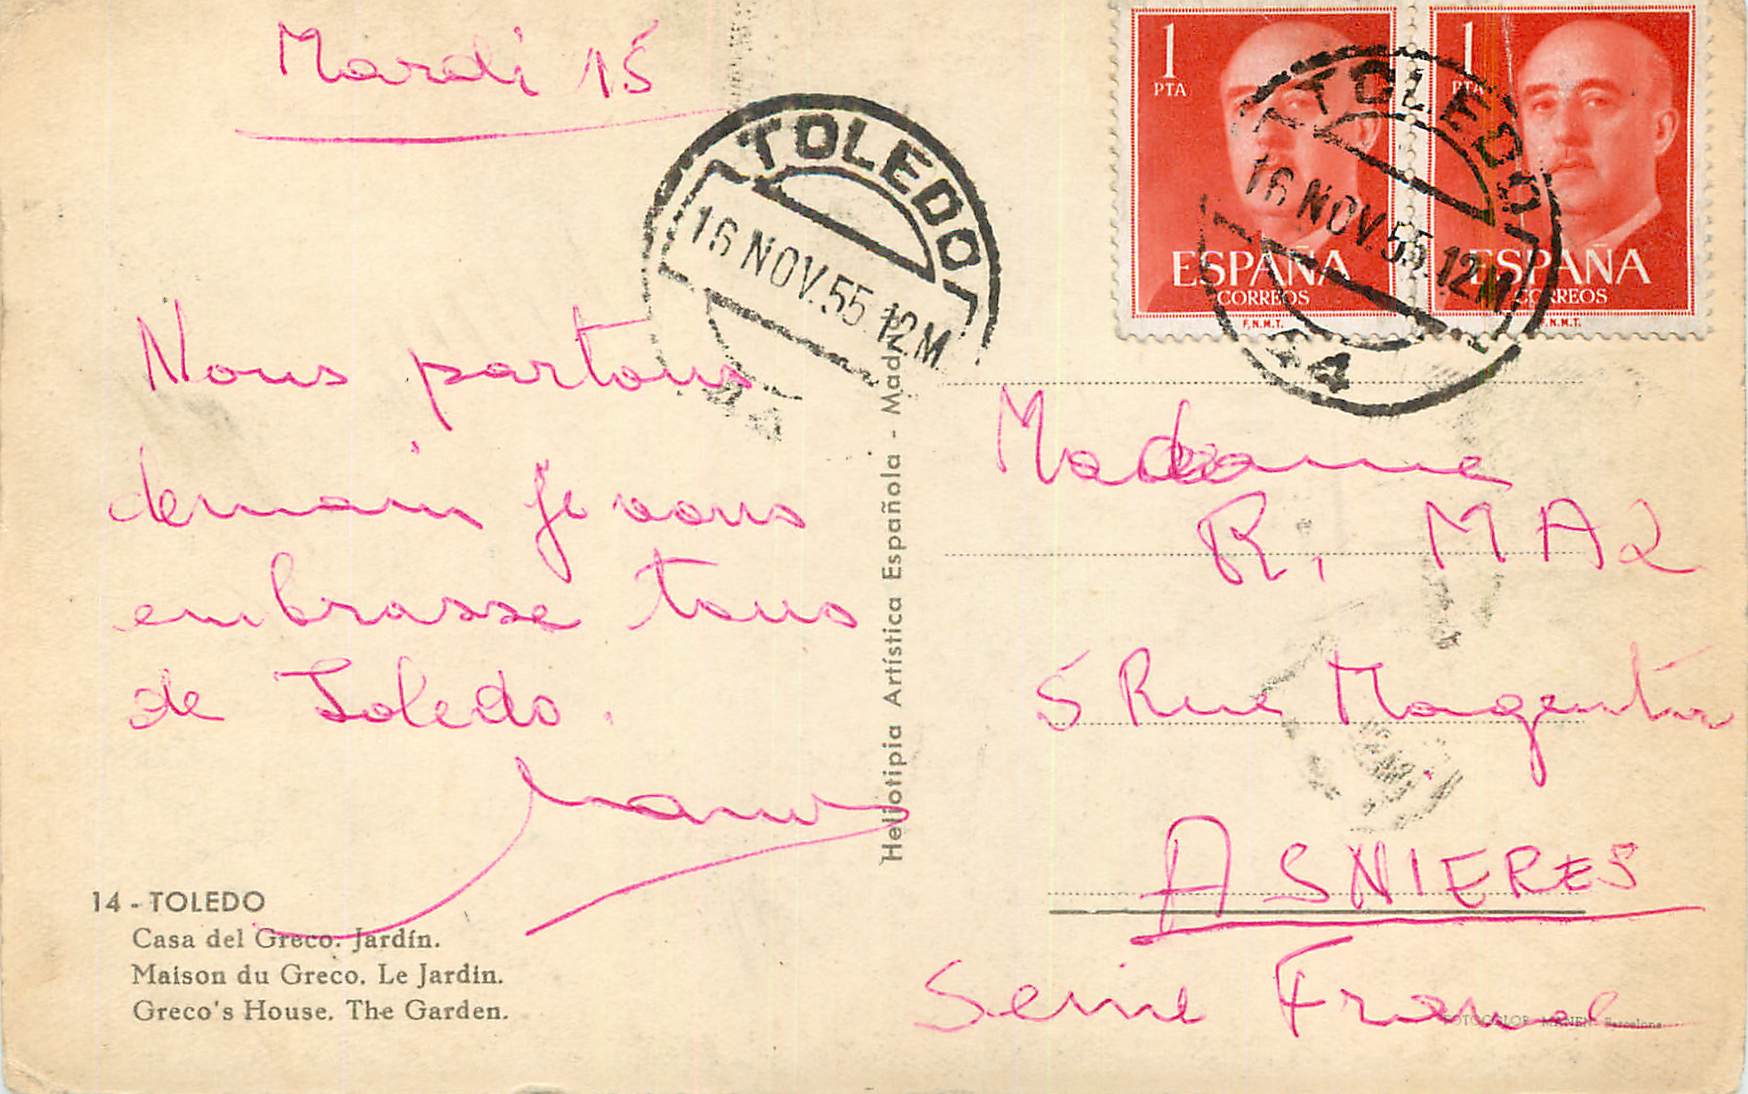 Mardi 15
Nous partons
demain je vous
embrasse tous
de Toledo.
14 - TOLEDO
Casa del Greco. Jardín.
Maison du Greco. Le Jardin.
Greco's House. The Garden.
Heliotipia Artística Española - Mad
TOLEDO
16 NOV.55.12M
1
PTA
ESPAÑA
CORREOS
F.N.M.T.
1
PTA
ESPAÑA
CORREOS
F.N.M.T.
TOLEDO
16 NOV.55.12M
Madame
R. MAZ
5 Rue Magenta
ASNIERES
Seine France
FOTOCOLOR MANEN Barcelona